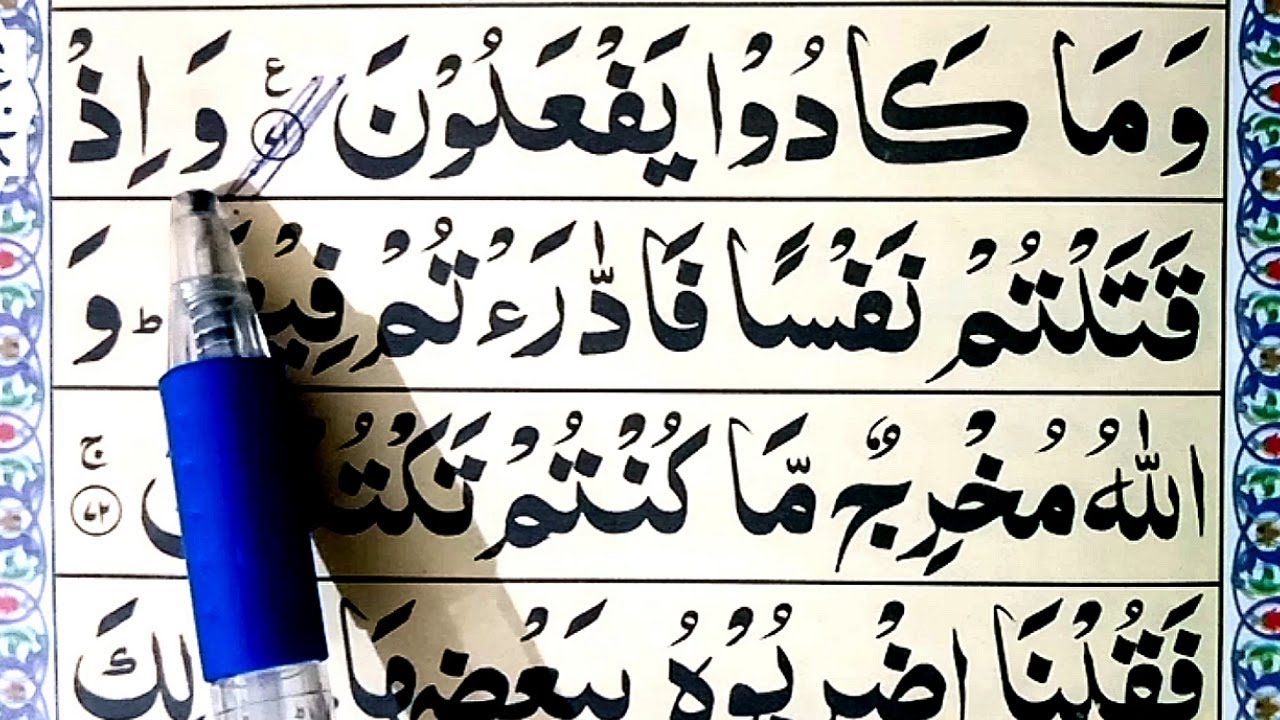 وَمَا كَادُوْا يَفْعَلُوْنَ ۧ ﴿۷۱﴾ وَ اِذْ
قَتَلْتُمْ نَفْسًا فَادّٰرَءْتُمْ ط وَ
اللّٰهُ مُخْرِجٌ مَّا كُنْتُمْ ج ﴿۷۲﴾
فَقُلْنَا اضْرِبُوْهُ بِبَعْضِهَا